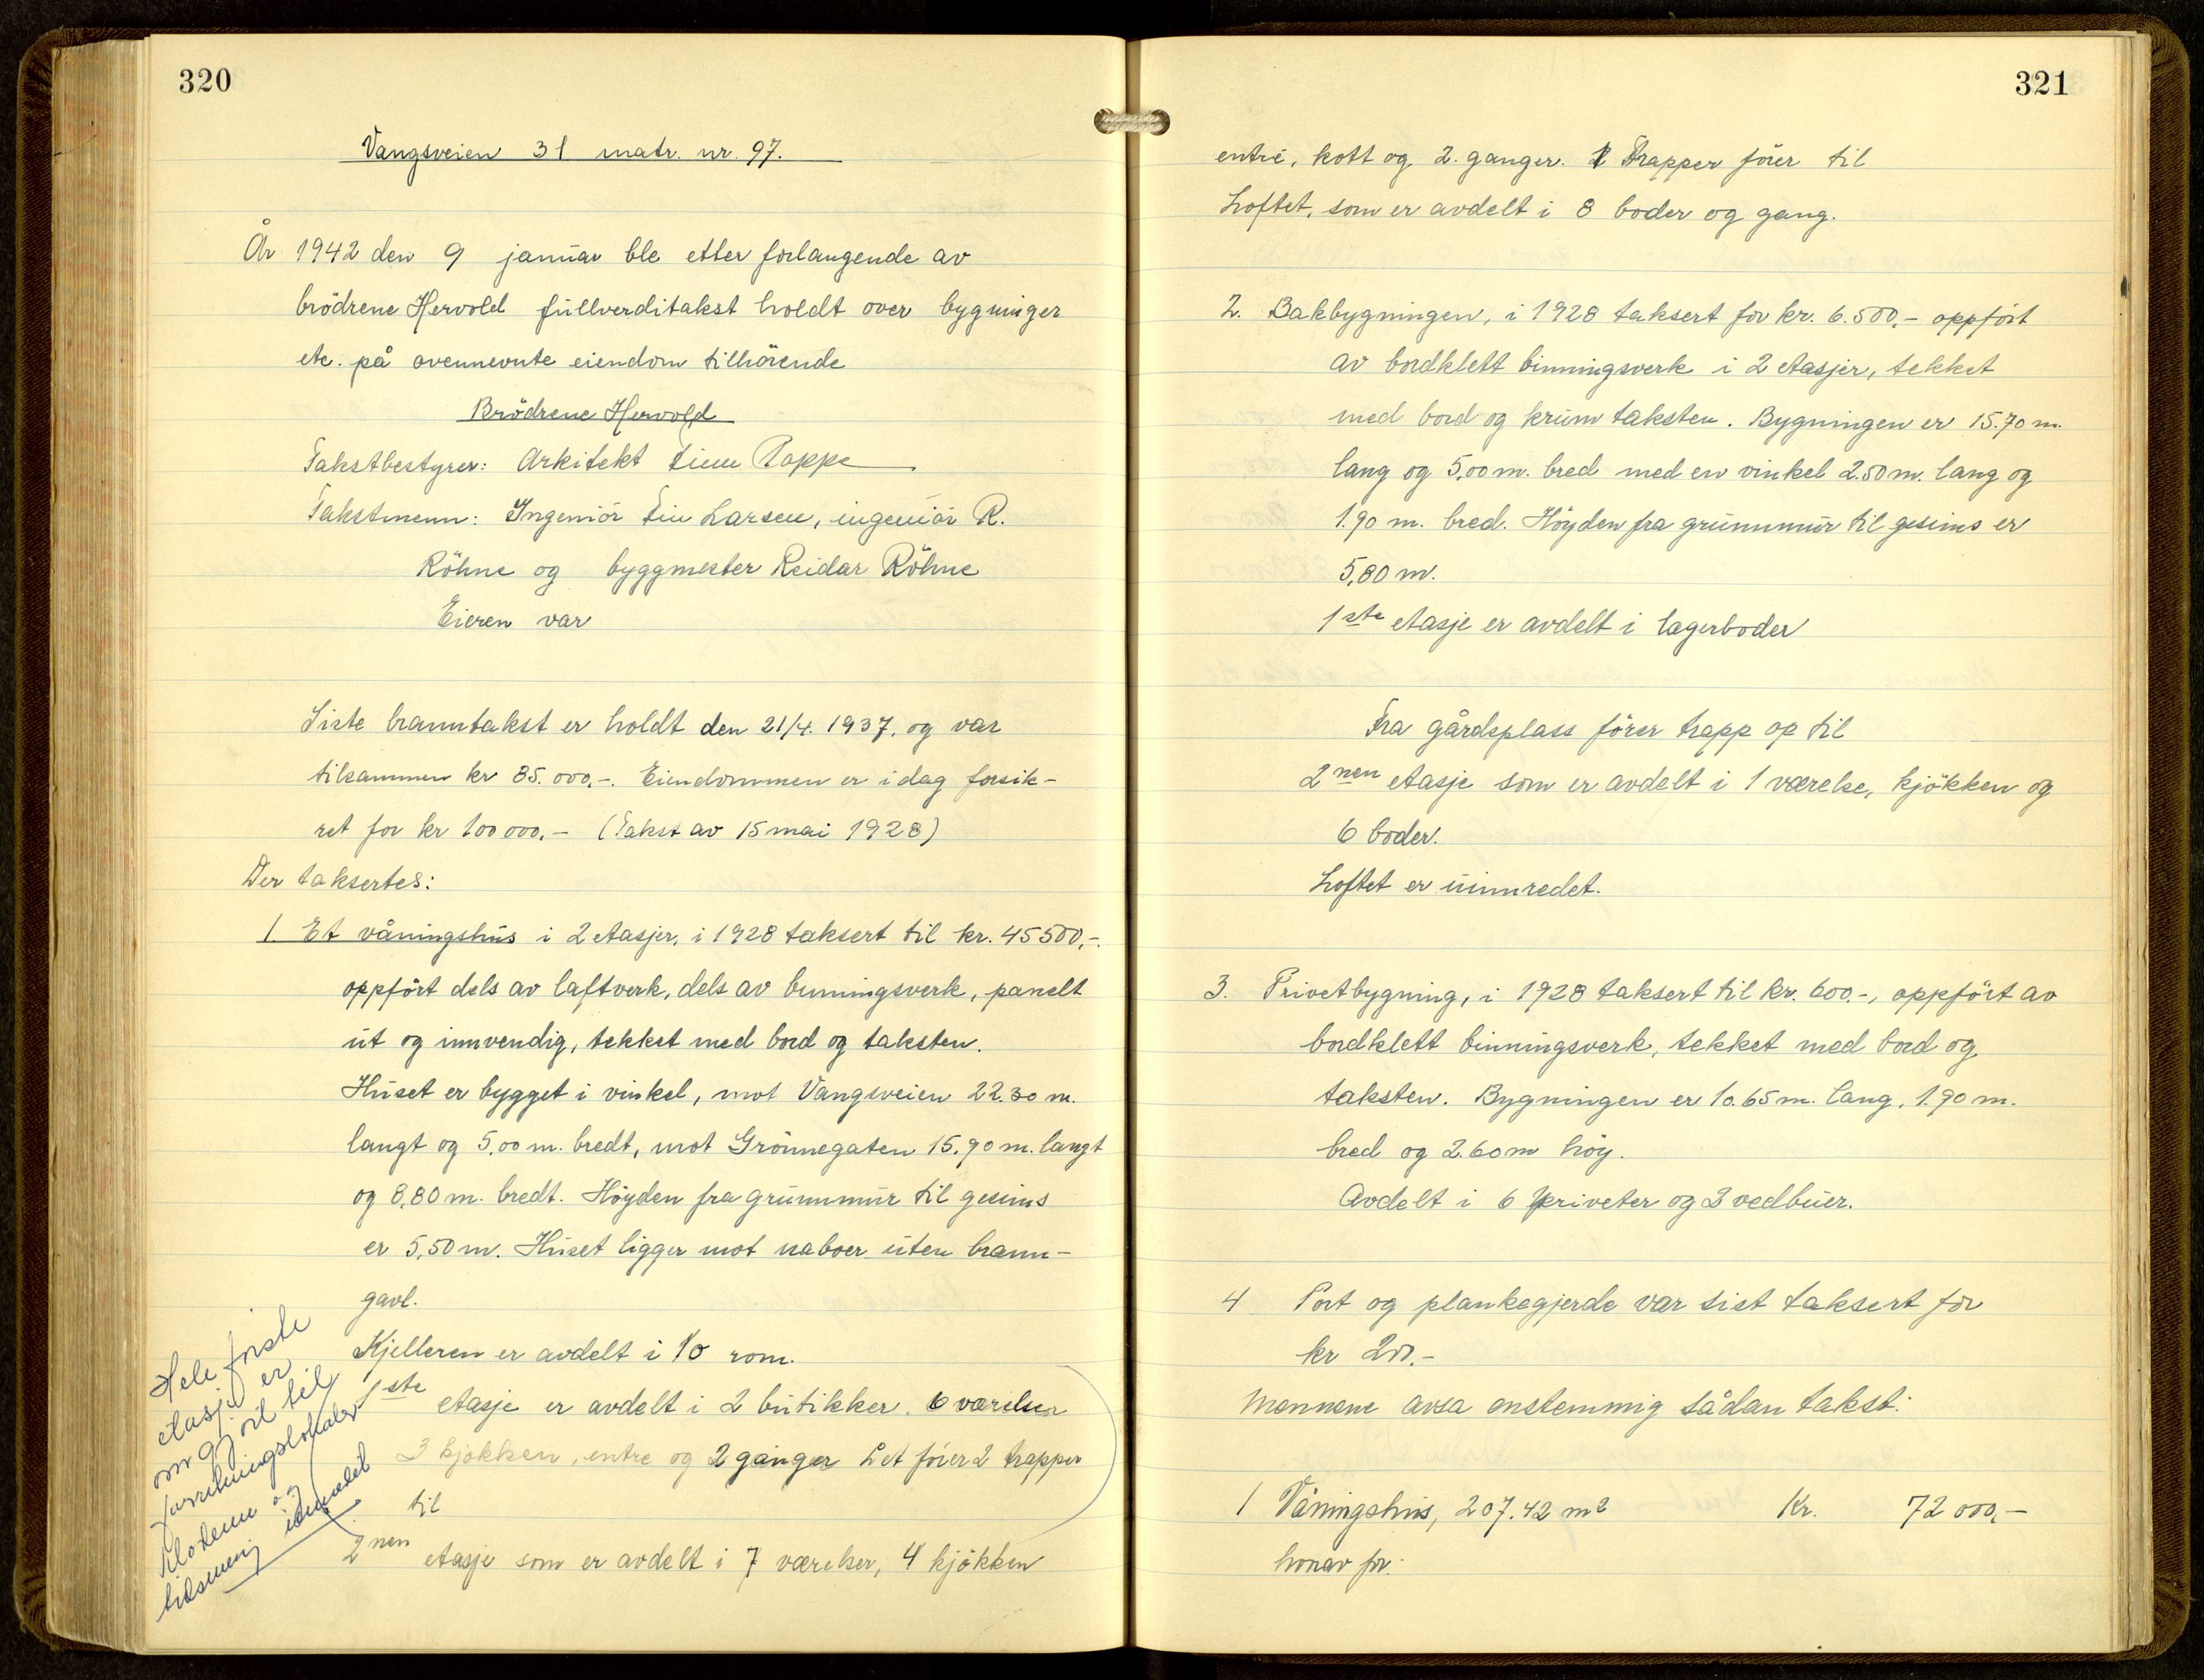 320
Vangsveien 31 matr. nr. 97.
År 1942 den 9 januar ble etter forlangende av
brödrene Hervold fullverditakst holdt over bygninger
etc. på ovennevnte eiendom tilhörende
Brödrene Hervold
Takstbestyrer: Arkitekt Finn Poppe
Takstmenn: Ingeniör Finn Larsen, ingeniör R.
Röhne og byggmester Reidar Röhne
Eieren var
Siste branntakst er holdt den 21/4. 1937. og var
tilsammen kr 85.000.-. Eiendommen er i dag forsik-
ret for kr 100 000.- (Takst av 15 mai 1928)
Der taksertes:
1. Et våningshus i 2 etasjer, i 1928 taksert til kr. 45500,-.
oppfört dels av laftverk, dels av binningsverk, panelt
ut og innvendig, tekket med bord og taksten.
Huset er bygget i vinkel, mot Vangsveien 22.30 m.
langt og 5,00 m. bredt, mot Grönnegaten 15.90 m. langt
og 8,80 m. bredt. Höyden fra grunnmur til gesims
er 5,50 m. Huset ligger mot naboer uten brann-
gavl.
Kjelleren er avdelt i 10 rom.
1ste etasje er avdelt i 2 butikker, 6 værelser
3 kjökken, entre og 2 ganger Det förer 2 trapper
til
2nen etasje som er avdelt i 7 værelser, 4 kjökken
Hele förste
etasje er
omgjort til
forretningslokaler
og
321
entré, kott og 2. ganger. 2 Trapper förer til
Loftet, som er avdelt i 8 boder og gang.
2. Bakbygningen, i 1928 taksert for kr. 6.500,- oppfört
av bordklett binningsverk i 2 etasjer, tekket
med bord og krum taksten. Bygningen er 15.70 m.
lang og 5,00 m. bred med en vinkel 2.50 m. lang og
1.90 m. bred. Höyden fra grunnmur til gesims er
5,80 m.
1ste etasje er avdelt i lagerboder
Fra gårdsplass förer trapp op til
2nen etasje som er avdelt i 1 værelse, kjökken og
6 boder.
Loftet er uinnredet.
3. Privetbygning, i 1928 taksert til kr. 600.-, oppfört av
bordklett binningsverk, tekket med bord og
taksten. Bygningen er 10.65 m. lang, 1.90 m.
bred og 2.60 m höy.
Avdelt i 6 priveter og 3 vedbuer.
4 Port og plankegjerde var sist taksert for
kr 200.-
Mennene avsa enstemmig sådan takst:
1 Våningshus, 207.42 m2 Kr. 72 000,-
horav for: